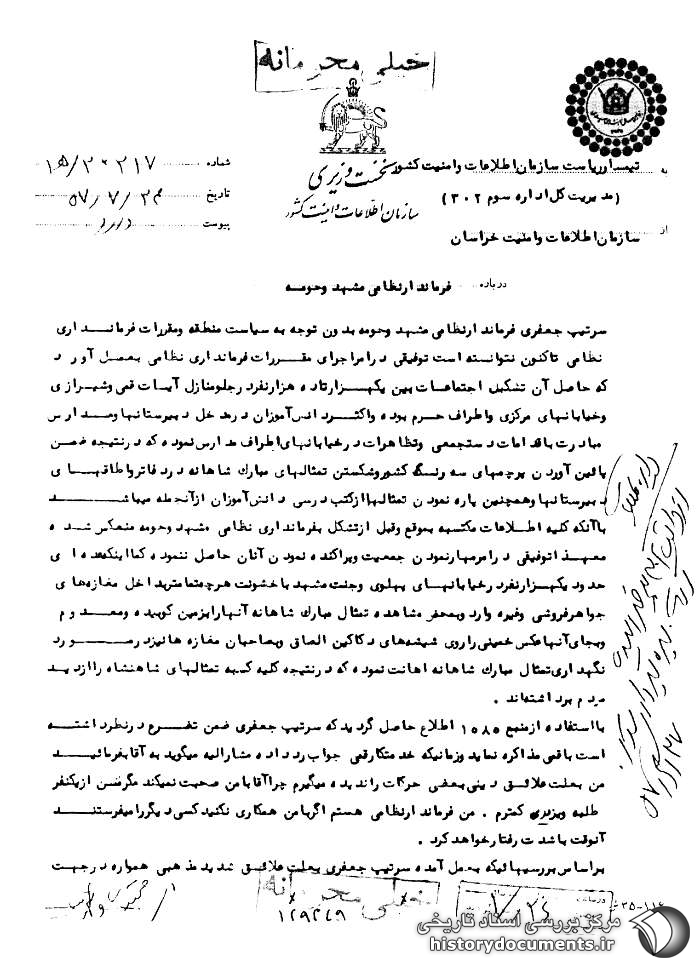 خیلی محرمانه
نخست وزیری
سازمان اطلاعات و امنیت کشور
به تیمسار ریاست سازمان اطلاعات و امنیت کشور
(مدیریت کل اداره سوم ۳۰۲)
از سازمان اطلاعات و امنیت خراسان
شماره ۱۵ﻫ/۳۰۲۱۷
تاریخ ۵۷/۷/۲۴
پیوست دارد
درباره فرماندار نظامی مشهد و حومه
سرتیپ جعفری فرماندار نظامی مشهد وحومه بدون توجه به سیاست منطقه ومقررات فرمانداری
نظامی تاکنون نتوانسته است توفیقی در امر اجرای مقررات فرمانداری نظامی بعمل آورد
که حاصل آن تشکیل اجتماعات بین یکهزار تا ده هزار نفر در جلو منازل آیات قمی وشیرازی
وخیابانهای مرکزی واطراف حرم بوده واکثر دانش آموزان در داخل دبیرستانها ومدارس
مبادرت باقدامات دستجمعی وتظاهرات در خیابانهای اطراف مدارس نموده که در نتیجه ضمن
پائین آوردن پرچمهای سه رنگ کشور وشکستن تمثالهای مبارک شاهانه در دفاتر واطاقهای
دبیرستانها وهمچنین پاره نمودن تمثالها از کتب درسی دانش آموزان از آنجمله میباشد
باآنکه کلیه اطلاعات مکتسبه بموقع وقبل از تشکل بفرمانداری نظامی مشهد وحومه منعکس شده
معهذا توفیقی در امر مهار نمودن جمعیت وپراکنده نمودن آنان حاصل ننموده کما اینکه عده ای
حدود یکهزار نفر در خیابانهای پهلوی وجنت مشهد با خشونت هرچه تمامتر بداخل مغازه های
جواهر فروشی وغیره وارد وبمحض مشاهده تمثال مبارک شاهانه آنها را بزمین کوبیده ومعدوم
وبجای آنها عکس خمینی را روی شیشه های دکاکین الصاق وبصاحبان مغازه ها نیز در مورد
نگهداری تمثال مبارک شاهانه اهانت نموده که در نتیجه کلیه کسبه تمثالهای شاهنشاه را از دید
مردم برداشته اند .
بااستفاده از منبع ۱۰۸۵ اطلاع حاصل گردید که سرتیپ جعفری ضمن تضرع در نظر داشته
است باقمی مذاکره نماید وزمانیکه خدمتکار قمی جواب رد داده مشارالیه میگوید به آقا بفرمائید
من بعلت علائق دینی بعضی حرکات را ندیده میگیرم چرا آقا با من صحبت نمیکند مگر من از یکنفر
طلبه ویزیری کمترم . من فرماندار نظامی هستم اگر با من همکاری نکنید کسی دیگر را میفرستند
آنوقت باشدت رفتار خواهد کرد .
براساس بررسیهائیکه بعمل آمده سرتیپ جعفری بعلت علائق شدید مذهبی همواره در جهت
خیلی محرمانه
۱۲۹۲۴۹
۷/۲۶
۳۵-۱۱۶
مرکز بررسی اسناد تاریخی
historydocuments.ir